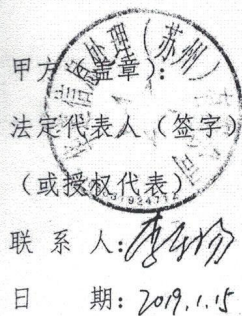 甲方（盖章）：
信息处理（苏州）
法定代表人（签字）
（或授权代表）
联 系 人：李
日 期：2019.1.15